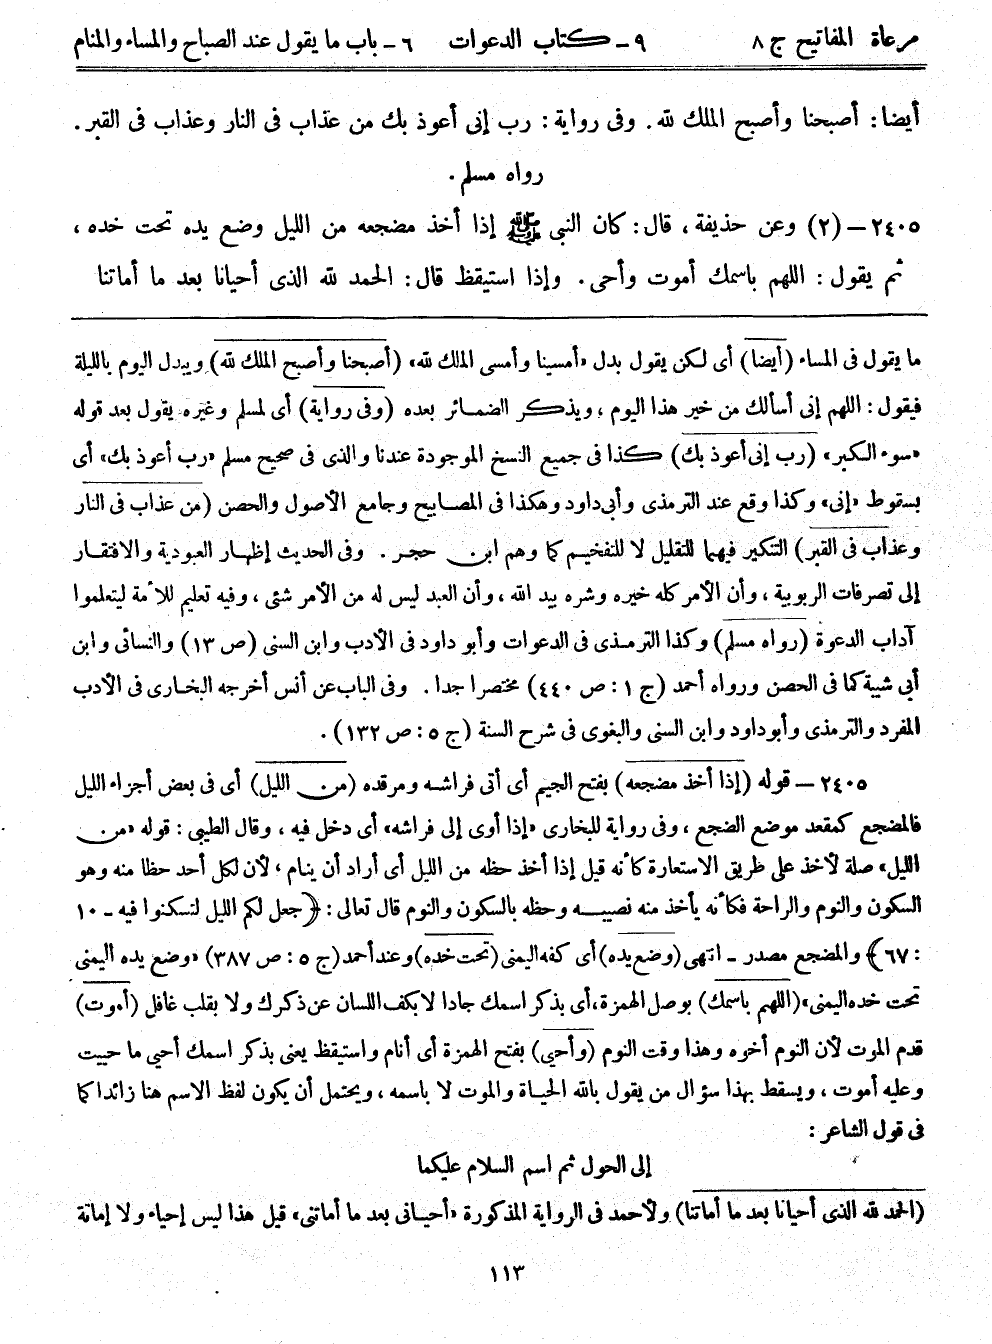 مرعاة المفاتيح ج ٨ ٩ ــ كتاب الدعوات ٦ ــ باب ما يقول عند الصباح والمساء والمنام
أيضا: أصبحنا وأصبح الملك لله. وفى رواية: رب إنى أعوذ بك من عذاب فى النار وعذاب فى القبر.
رواه مسلم.
٢٤٠٥ ــ (٢) وعن حذيفة، قال: كان النبى ﷺ إذا أخذ مضجعه من الليل وضع يده تحت خده،
ثم يقول: اللهم باسمك أموت وأحى. وإذا استيقظ قال: الحمد لله الذى أحيانا بعد ما أماتنا
ما يقول فى المساء (أيضا) أى لكن يقول بدل «أمسينا وأمسى الملك لله» (أصبحنا وأصبح الملك لله) ويبدل اليوم بالليلة
فيقول: اللهم إنى أسألك من خير هذا اليوم، ويذكر الضمائر بعده (وفى رواية) أى لمسلم وغيره يقول بعد قوله
«سوء الكبر» (رب إنى أعوذ بك) كذا فى جميع النسخ الموجودة عندنا والذى فى صحيح مسلم «رب أعوذ بك» أى
بسقوط «إنى» وكذا وقع عند الترمذى وأبى داود وهكذا فى المصابيح وجامع الأصول والحصن (من عذاب فى النار
وعذاب فى القبر) التنكير فيهما للتقليل لا للتفخيم كما وهم ابن حجر. وفى الحديث إظهار العبودية والافتقار
إلى تصرفات الربوبية، وأن الأمر كله خيره وشره بيد الله، وأن العبد ليس له من الأمر شئى، وفيه تعليم للأمة ليتعلموا
آداب الدعوة (رواه مسلم) وكذا الترمذى فى الدعوات وأبو داود فى الأدب وابن السنى (ص ١٣) والنسائى وابن
أبى شيبة كما فى الحصن ورواه أحمد (ج ١: ص ٤٤٠) مختصرا جدا. وفى الباب عن أنس أخرجه البخارى فى الأدب
المفرد والترمذى وأبو داود وابن السنى والبغوى فى شرح السنة (ج ٥: ص ١٣٢).
٢٤٠٥ ــ قوله (إذا أخذ مضجعه) بفتح الجيم أى أتى فراشه ومرقده (من الليل) أى فى بعض أجزاء الليل
فالمضجع كمقعد موضع الضجع، وفى رواية للبخارى «إذا أوى إلى فراشه» أى دخل فيه، وقال الطيبى: قوله «من
الليل» صلة لأخذ على طريق الاستعارة كأنه قيل إذا أخذ حظه من الليل أى أراد أن ينام، لأن لكل أحد حظا منه وهو
السكون والنوم والراحة فكأنه يأخذ منه نصيبه وحظه بالسكون والنوم قال تعالى: ﴿جعل لكم الليل لتسكنوا فيه ــ ١٠
: ٦٧﴾ والمضجع مصدر ــ انتهى (وضع يده) أى كفه اليمنى (تحت خده) وعند أحمد (ج ٥: ص ٣٨٧) «وضع يده اليمنى
تحت خده اليمنى» (اللهم باسمك) بوصل الهمزة، أى بذكر اسمك جادا لا بكف اللسان عن ذكرك ولا بقلب غافل (أموت)
قدم الموت لأن النوم أخوه وهذا وقت النوم (وأحيي) بفتح الهمزة أى أنام واستيقظ يعنى بذكر اسمك أحيي ما حييت
وعليه أموت، ويسقط بهذا سؤال من يقول بالله الحياة والموت لا باسمه، ويحتمل أن يكون لفظ الاسم هنا زائدا كما
فى قول الشاعر:
إلى الحول ثم اسم السلام عليكما
(الحمد لله الذى أحيانا بعد ما أماتنا) ولأحمد فى الرواية المذكورة «أحيانى بعد ما أماتنى» قيل هذا ليس إحياء ولا إماتة
١١٣